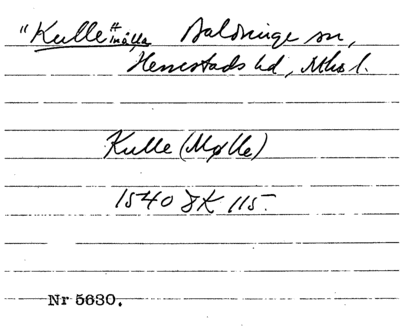 "Kulle" mölla Baldringe sn,
Herrestads hd, Mlhs l.
Kulle (Mølle)
1540 JK 115.
Nr 5630.